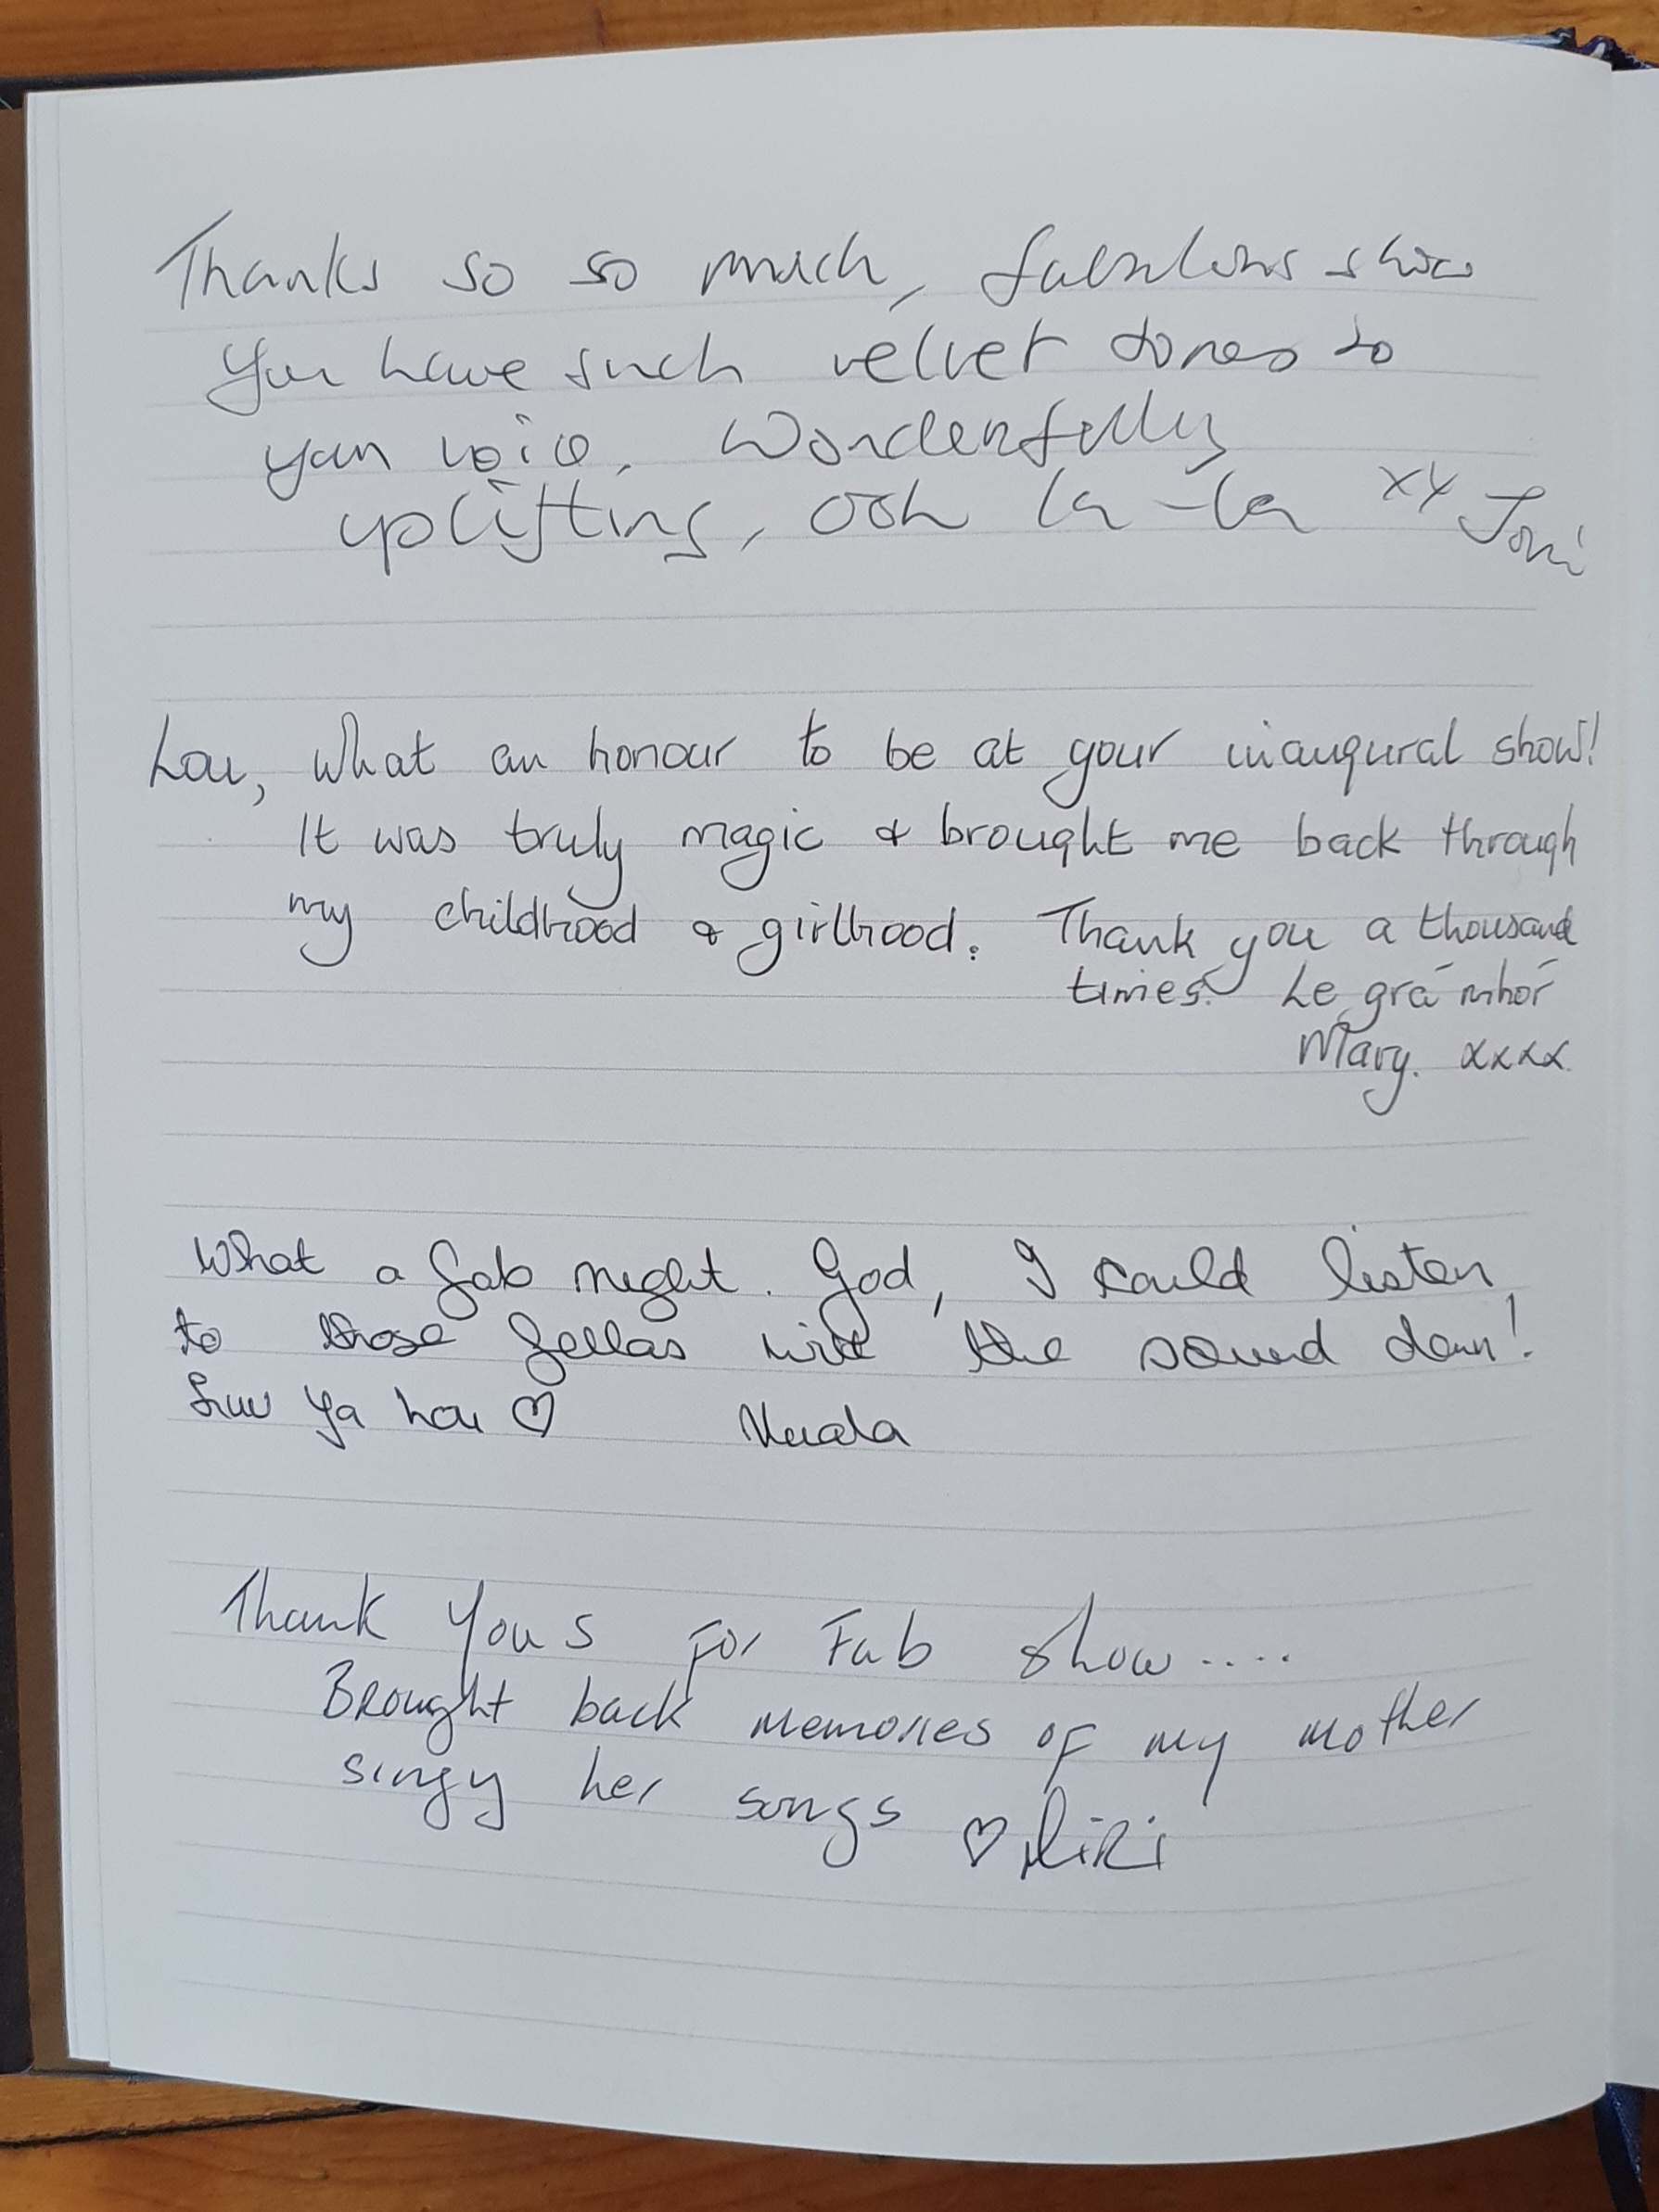 Thanks so so much, fabulous show
You have such velvet tones to
your voice. Wonderfully
uplifting, ooh la-la xx Joni
Lou, What an honour to be at your inaugural show!
It was truly magic & brought me back through
my childhood & girlhood. Thank you a thousand
times. Le grá mhór
Mary. xxxx
What a fab night. God, I could listen
to those fellas with the sound down!
Luv Ya Lou ♡ Nuala
Thank Yous For Fab Show....
Brought back memories of my mother
singy her songs ♡